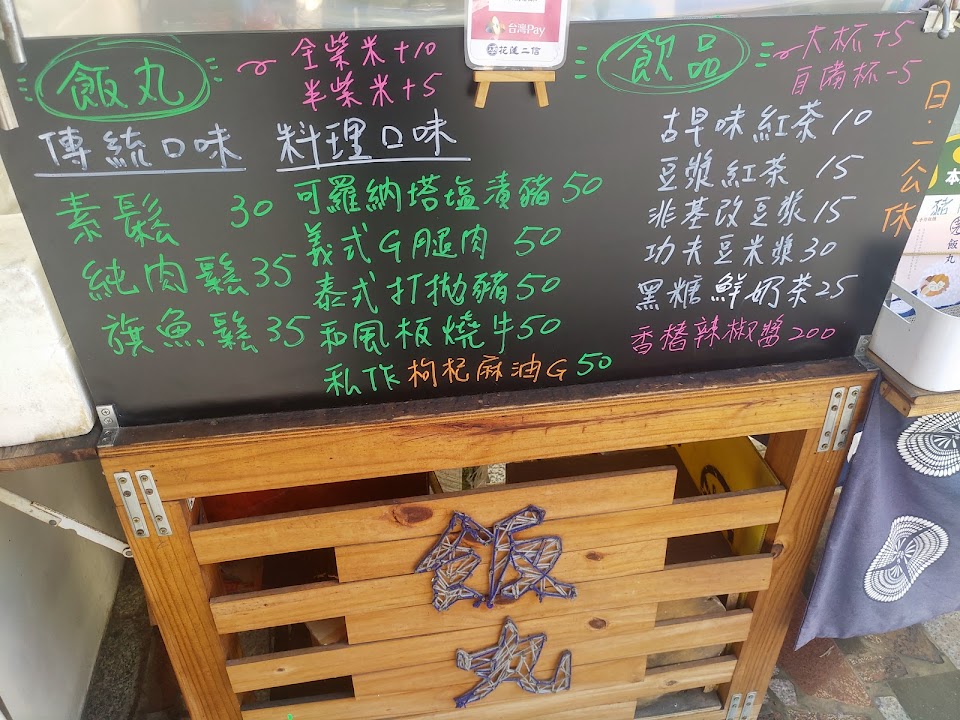 台灣Pay
花蓮二信
飯丸
全柴米+10
半柴米+5
傳統口味
素鬆 30
純肉鬆 35
旗魚鬆 35
料理口味
可羅納塔塩漬豬 50
義式G腿肉 50
泰式打拋豬 50
和風板燒牛 50
私作枸杞麻油G 50
飲品
大杯+5
自備杯-5
古早味紅茶 10
豆漿紅茶 15
非基改豆漿 15
功夫豆米漿 30
黑糖鮮奶茶 25
香樁辣椒醬 200
日.一
公休
本
飯丸
飯
丸